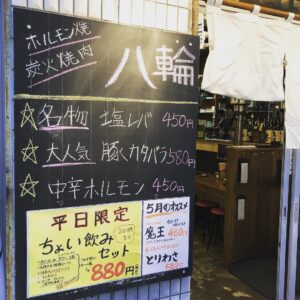 ホルモン焼
炭火焼肉
八輪
☆名物 塩レバ 450円
☆大人気 豚くカタバラ 580円
☆中辛ホルモン 450円
平日限定
ちょい飲み
セット
880円
5月のオススメ
魔王
480円
とりわさ